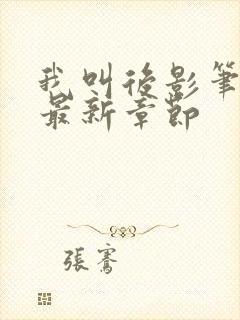 我叫後影筆
最新章節
張騫